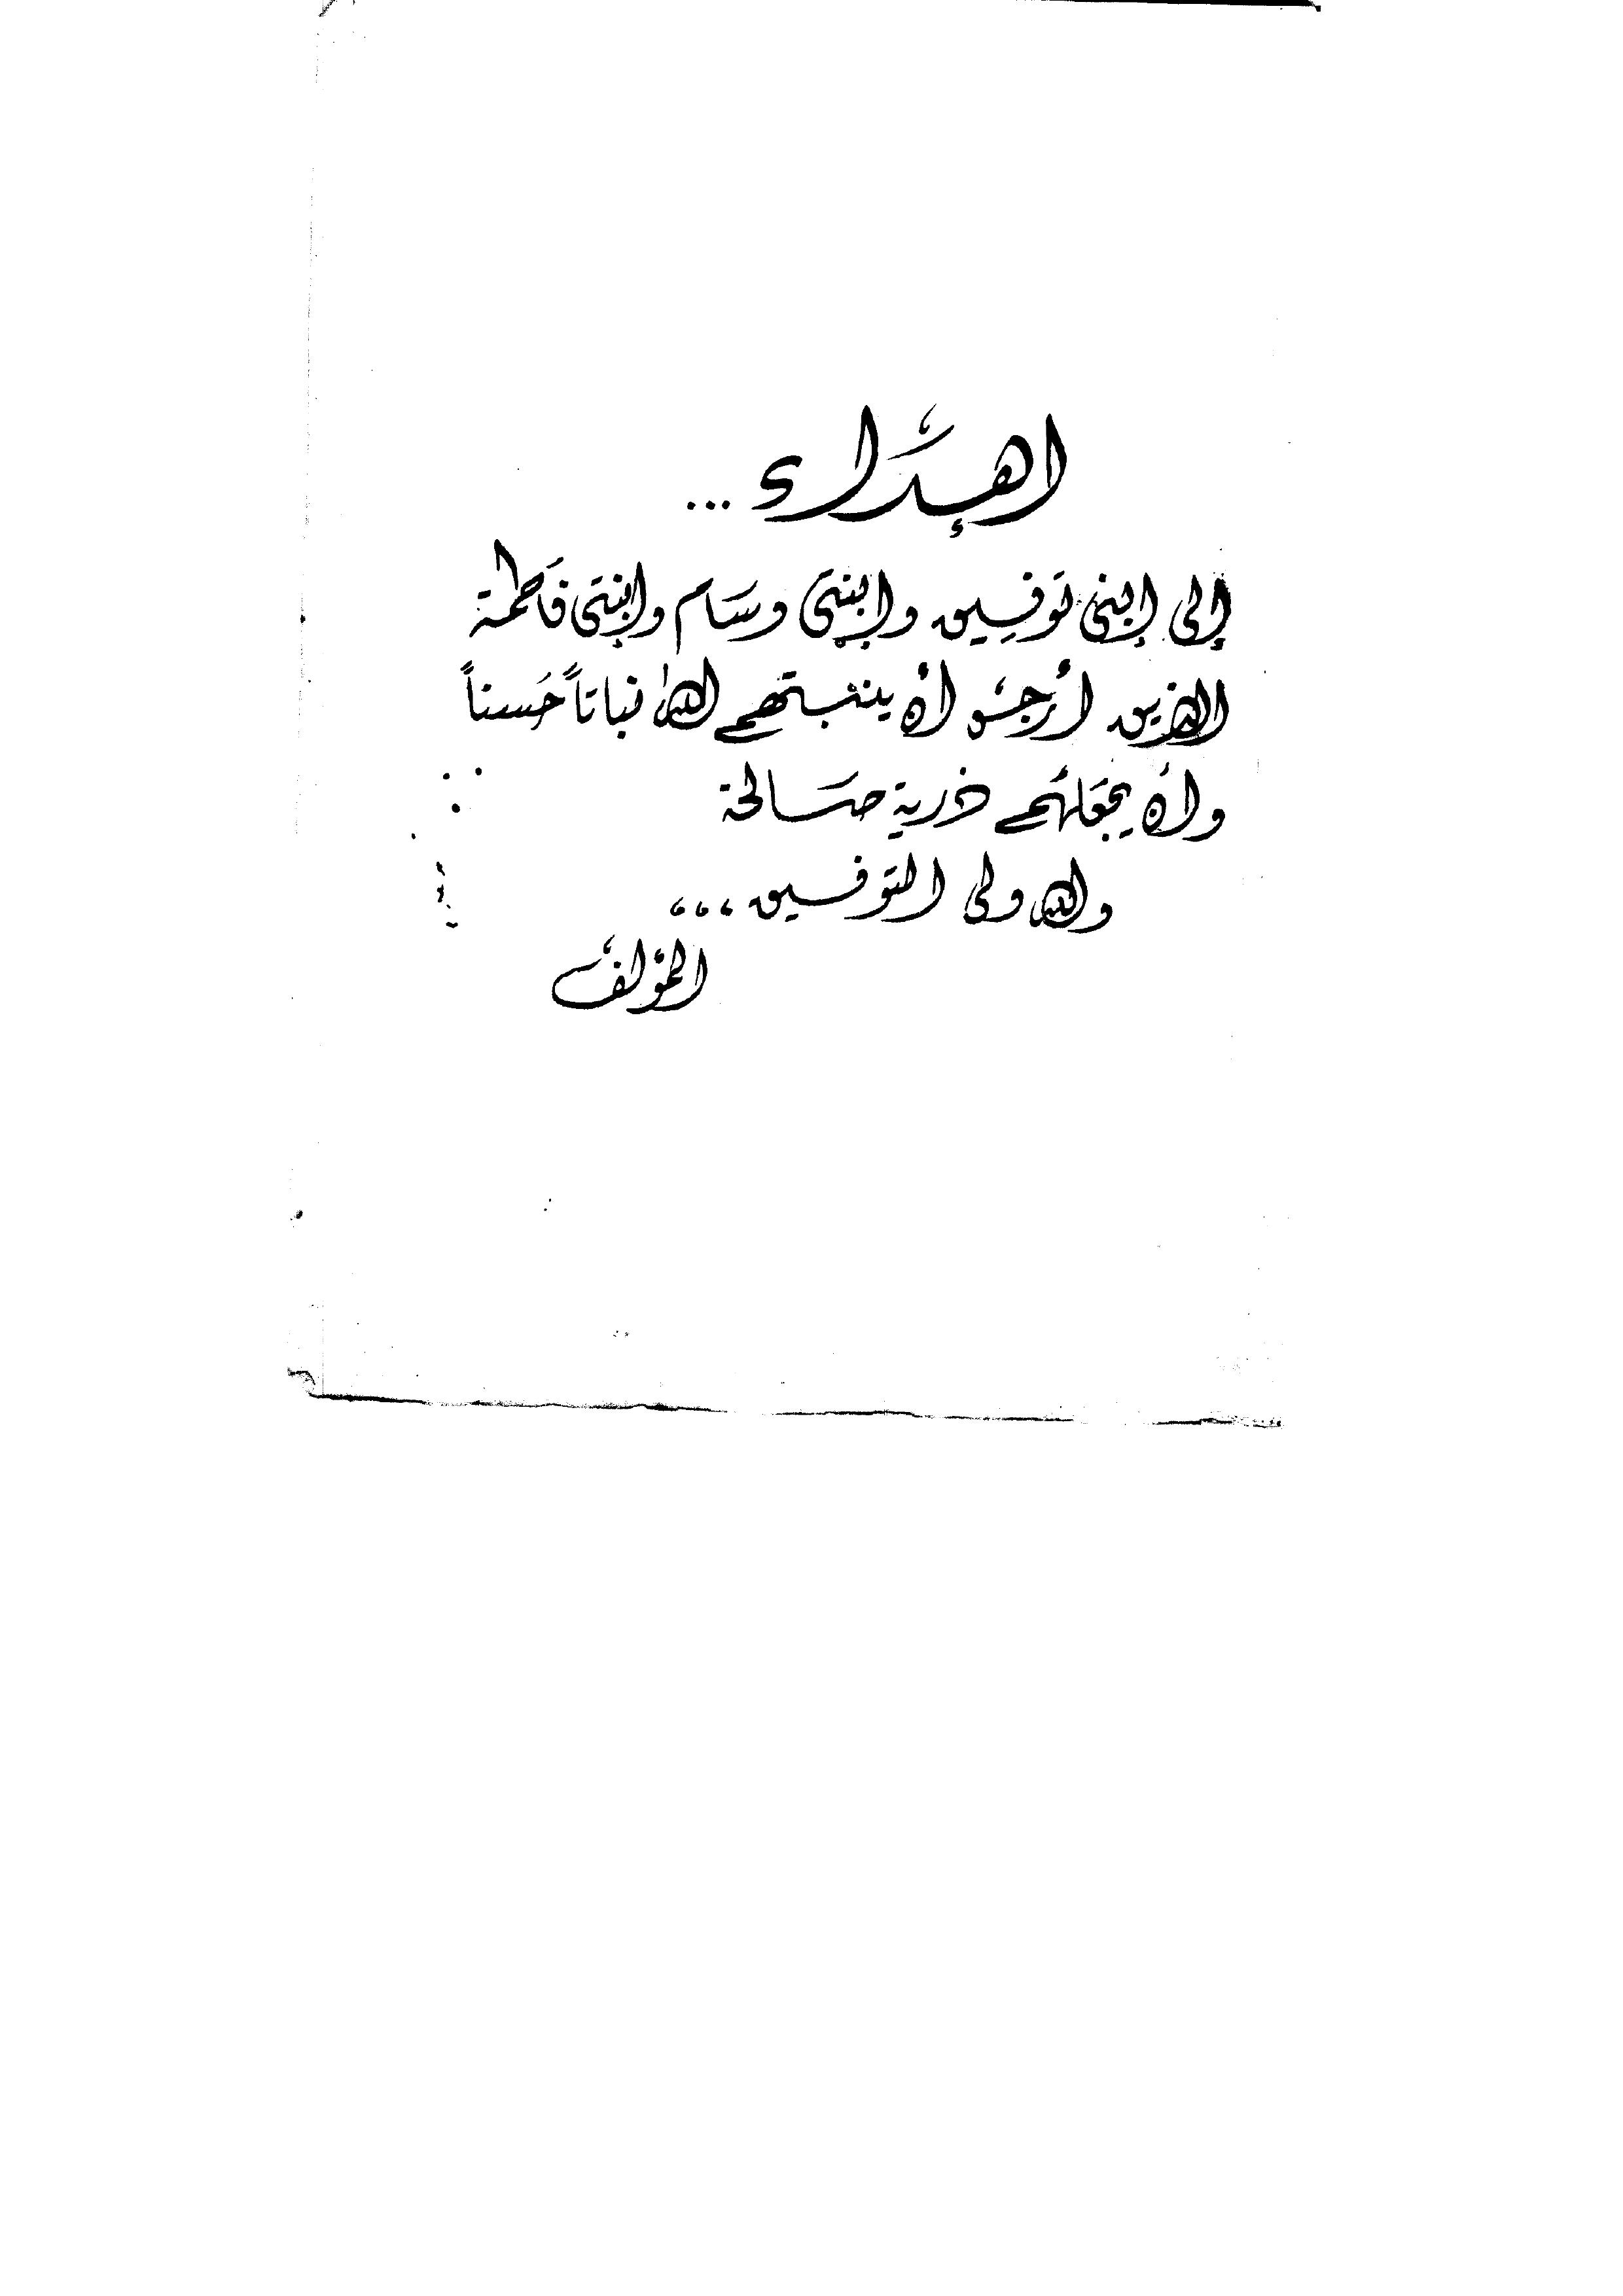 إهداء ...
إلى إبنى توفيق وإبنتى وسام وإبنتى فاطمة
الذين أرجو أن ينبتهم الله نباتاً حسناً
وأن يجعلهم ذرية صالحة
والله ولى التوفيق ،،،
المؤلف